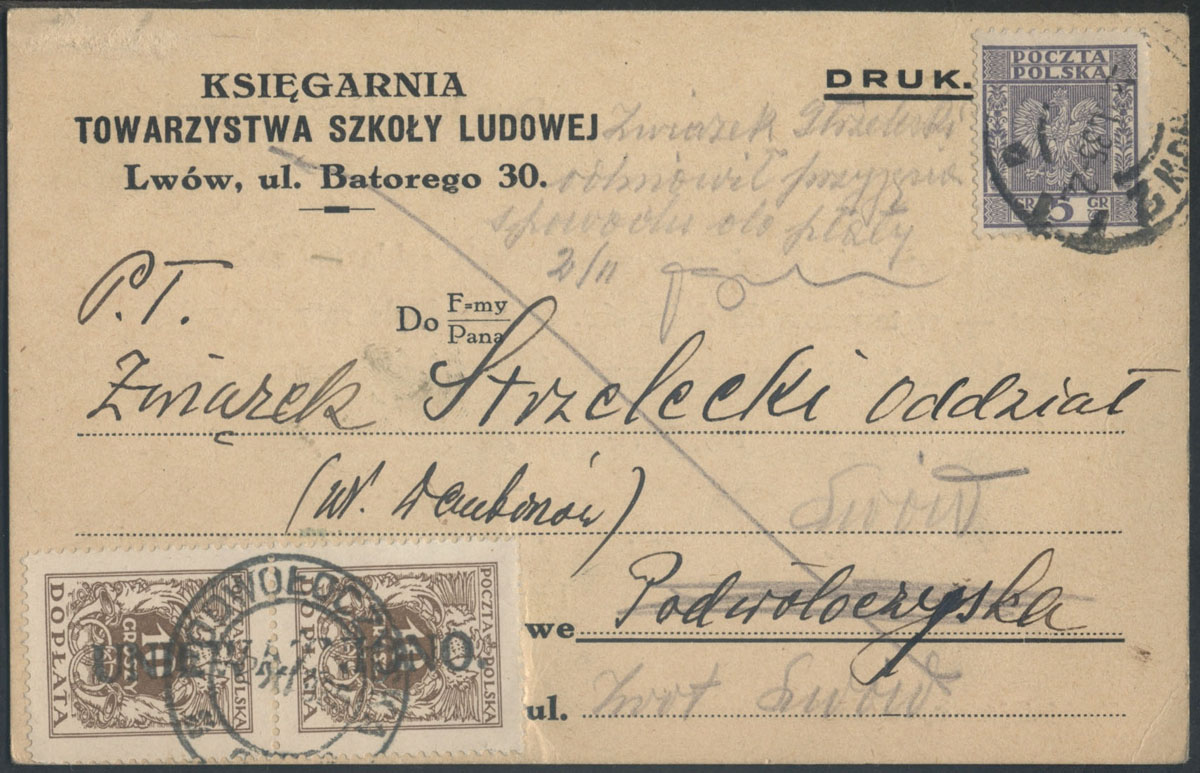 KSIĘGARNIA
TOWARZYSTWA SZKOŁY LUDOWEJ
Lwów, ul. Batorego 30.
DRUK.
POCZTA
POLSKA
GR 5 GR
Związek Strzelecki
odmówił przyjęcia
spowodu do płaty
2/11
P.T.
Do F=my
Pana
Związek Strzelecki oddział
(w. Dambonów)
Lwów
we Podwołoczyska
ul. Zwrot Lwów
DOPŁATA
GR
POCZTA POLSKA
UNIEWAŻNIONO
PODWOŁOCZYSKA